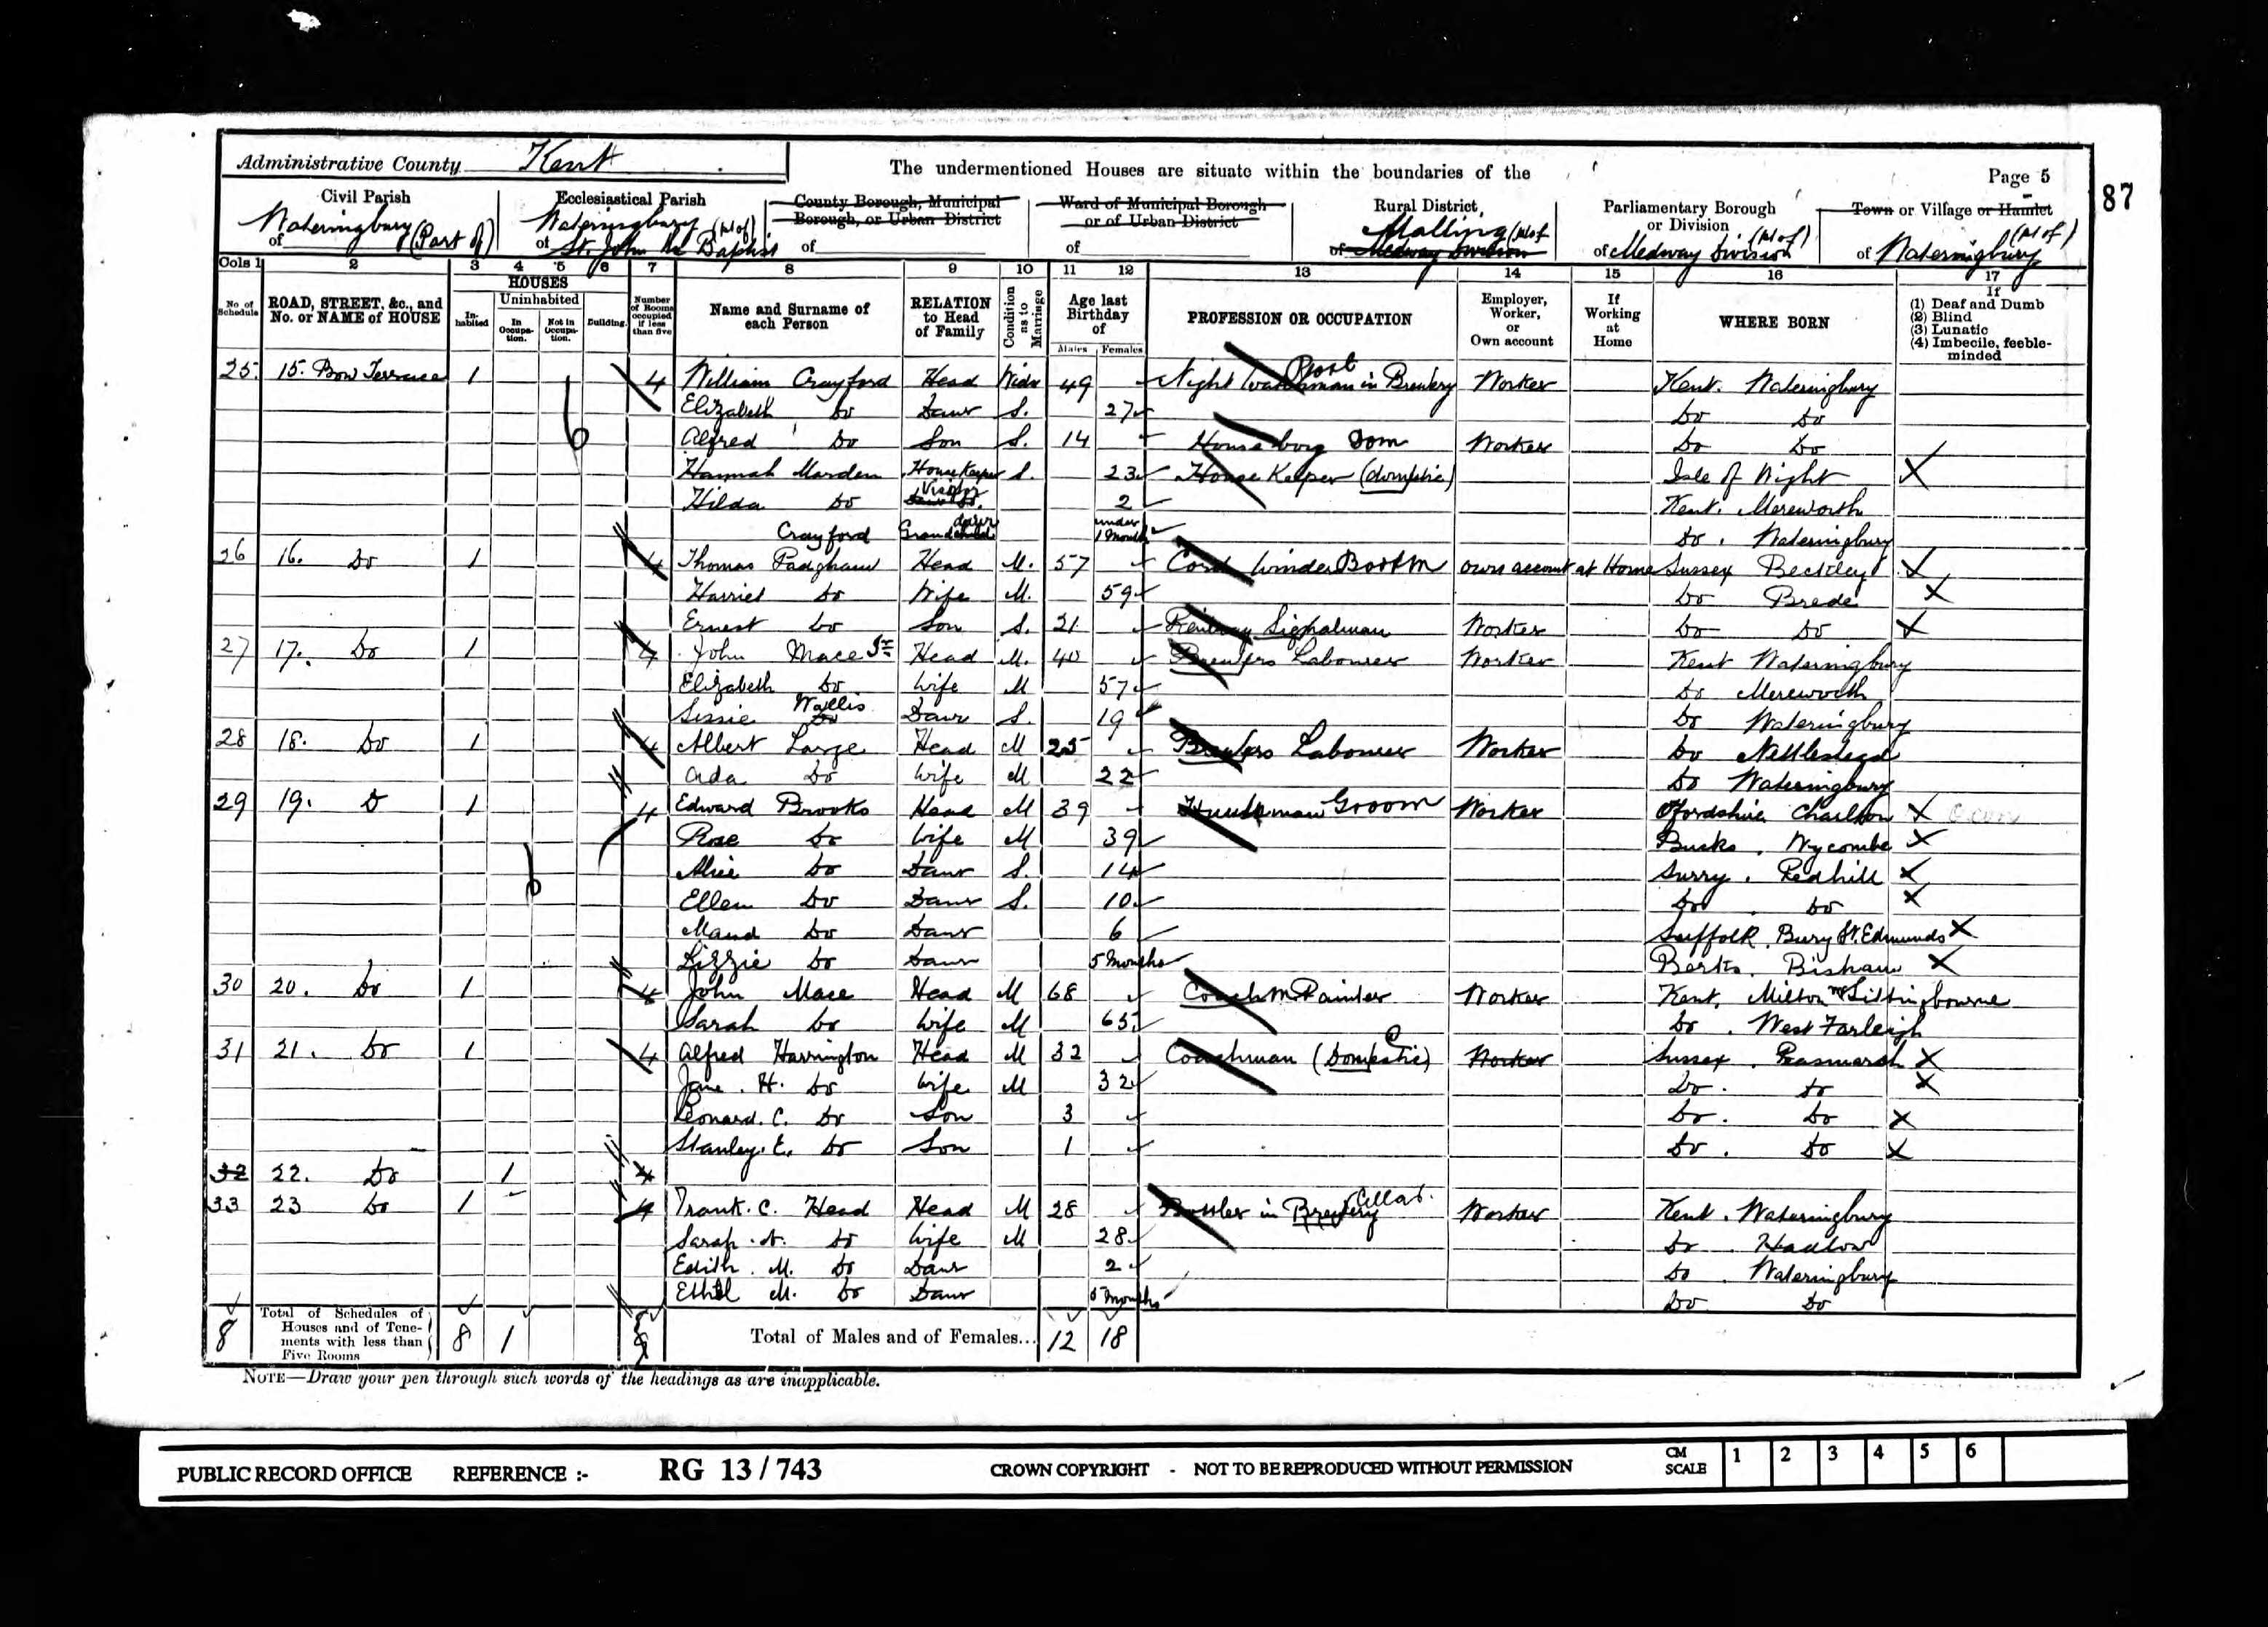 Administrative County Kent
The undermentioned Houses are situate within the boundaries of the
Page 5
87
Civil Parish of Wateringbury (Part of)
Ecclesiastical Parish of Wateringbury (pt of) St. John the Baptist
County Borough, Municipal Borough, or Urban District of
Ward of Municipal Borough or of Urban District of
Rural District, of Malling (pt of Medway Division
Parliamentary Borough or Division of Medway Division (pt of)
Town or Village or Hamlet of Wateringbury (pt of)
Cols 1 2 3 4 5 6 7 8 9 10 11 12 13 14 15 16 17
No of Schedule
ROAD, STREET, &c., and No. or NAME of HOUSE
HOUSES
In-habited
Uninhabited
In Occupa-tion.
Not in Occupa-tion.
Building.
Number of Rooms occupied if less than five
Name and Surname of each Person
RELATION to Head of Family
Condition as to Marriage
Age last Birthday of
Males Females
PROFESSION OR OCCUPATION
Employer, Worker, or Own account
If Working at Home
WHERE BORN
If
(1) Deaf and Dumb
(2) Blind
(3) Lunatic
(4) Imbecile, feeble-minded
25 15. Bow Terrace 1 4 William Crayford Head Widr 49 Night Watchman in Brewery Worker Kent. Wateringbury
Elizabeth Do Daur S. 27 Do Do
Alfred Do Son S. 14 House boy Dom Worker Do Do
Hannah Marden House Keeper S. 23 House Keeper (domestic) Isle of Wight X
Hilda Do Visitor 2 Kent. Mereworth
Crayford Grand daur under 1 Month Do. Wateringbury
26 16. Do 1 4 Thomas Padgham Head M. 57 Cord Winder Boot M own account at Home Sussex Beckley X
Harriet Do Wife M. 59 Do Brede X
Ernest Do Son S. 21 Railway Signalman Worker Do Do X
27 17. Do 1 4 John Mace Jr Head M. 40 Brewers Labourer Worker Kent Wateringbury
Elizabeth Do Wife M 57 Do Mereworth
Sissie Do Wallis Daur S. 19 Do Wateringbury
28 18. Do 1 4 Albert Large Head M 25 Brewers Labourer Worker Do Nettlestead
Ada Do Wife M 22 Do Wateringbury
29 19. D 1 4 Edward Brooks Head M 39 Groom Worker Ofordshire Charlton X
Rose Do Wife M 39 Bucks. Wycombe X
Alice Do Daur S. 14 Surry. Redhill X
Ellen Do Daur S. 10 Do. Do X
Maud Do Daur 6 Suffolk. Bury St. Edmunds X
Lizzie Do Daur 5 Months Berks. Bisham X
30 20. Do 1 4 John Mace Head M 68 Coach M Painter Worker Kent. Milton nr Sittingbourne
Sarah Do Wife M 65 Do. West Farleigh
31 21. Do 1 4 Alfred Harrington Head M 32 Coachman (Domestic) Worker Sussex. Peasmarsh X
Jane. H. Do Wife M 32 Do. Do X
Leonard. C. Do Son 3 Do. Do X
Stanley. E. Do Son 1 Do. Do X
32 22. Do 1 4
33 23 Do 1 4 Frank. C. Head Head M 28 Bottler in Brewery Cellar. Worker Kent. Wateringbury
Sarah. A. Do Wife M 28 Do. Hadlow
Edith. M. Do Daur 2 Do. Wateringbury
Ethel M. Do Daur 5 Months Do Do
8 Total of Schedules of Houses and of Tene-ments with less than Five Rooms 8 1 Total of Males and of Females... 12 18
NOTE—Draw your pen through such words of the headings as are inapplicable.
PUBLIC RECORD OFFICE REFERENCE :- RG 13/743 CROWN COPYRIGHT - NOT TO BE REPRODUCED WITHOUT PERMISSION CM SCALE 1 2 3 4 5 6